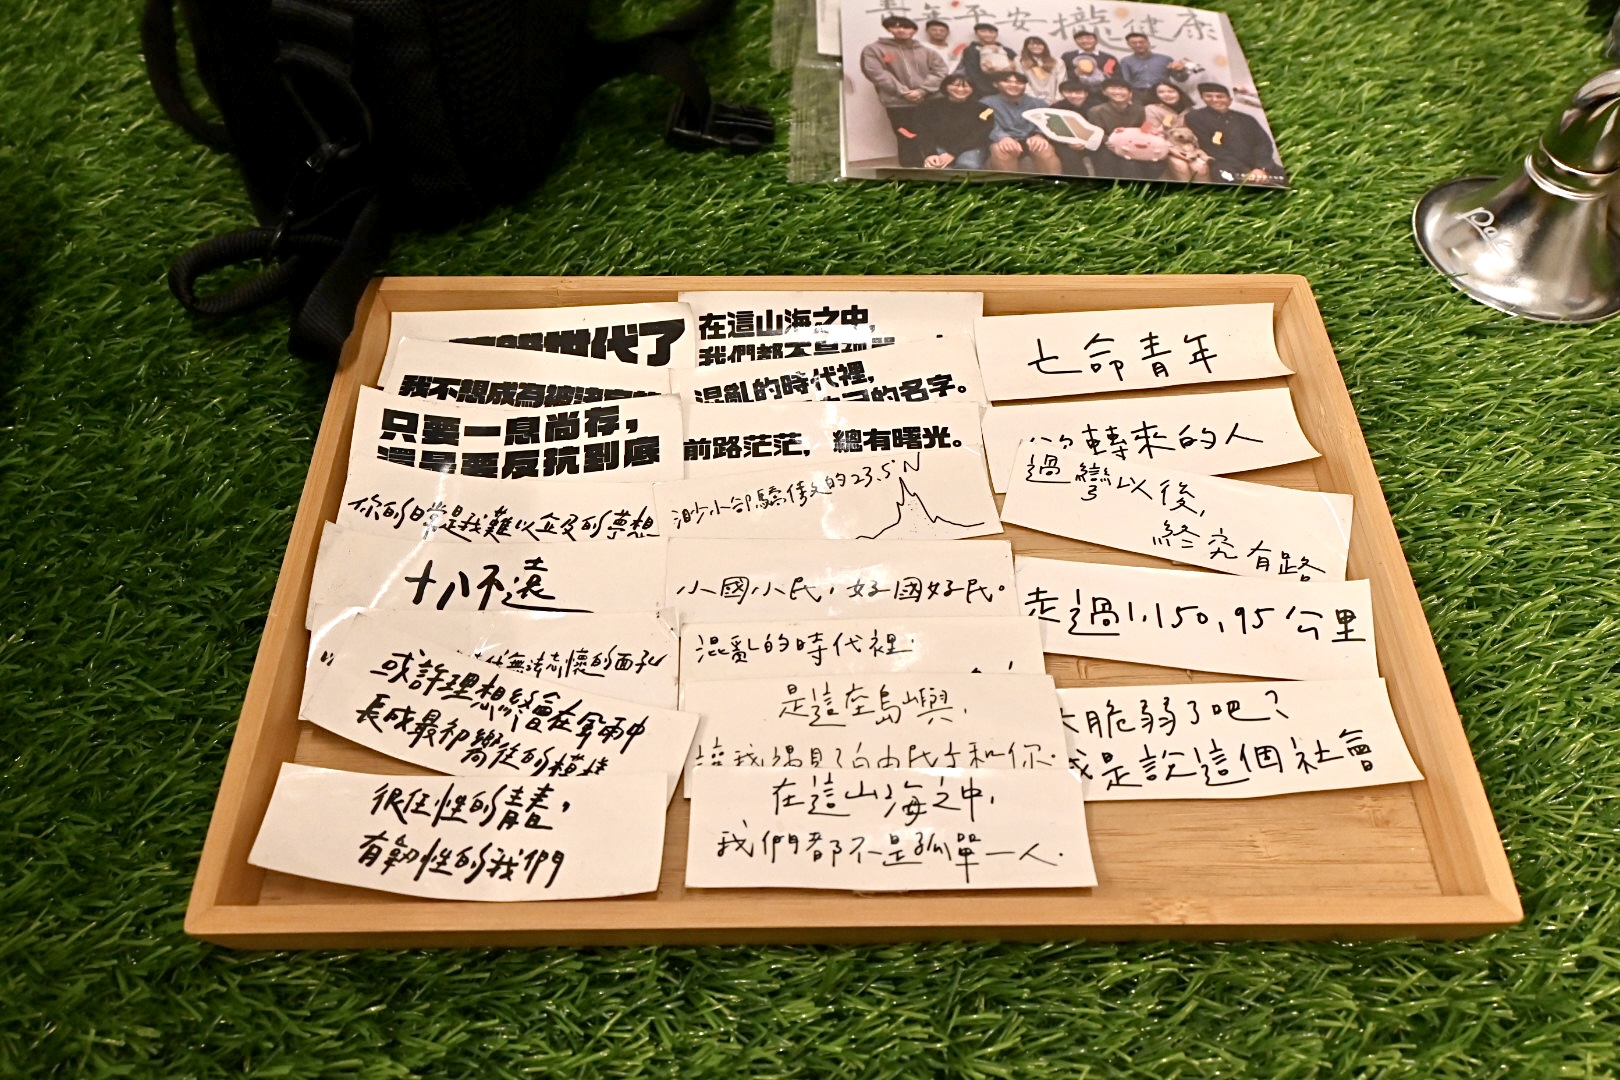 青年平安攏健康
世代了
我不想成為被
只要一息尚存，
還是要反抗到底
你的日常是我難以企及的夢想
十八不遠
無法忘懷的面孔
或許理想終會在
長成最初嚮往的模樣
很任性的青春，
有韌性的我們
在這山海之中，
我們都不是孤單
混亂的時代裡，
的名字。
前路茫茫，總有曙光。
渺小卻驕傲的23.5°N
小國小民，好國好民。
混亂的時代裡，
是這座島嶼，
讓我遇見了自由民主和你。
在這山海之中，
我們都不是孤單一人。
七命青年
轉來的人
過彎以後，
終究有路
走過1,150,95公里
脆弱了吧？
或是說這個社會